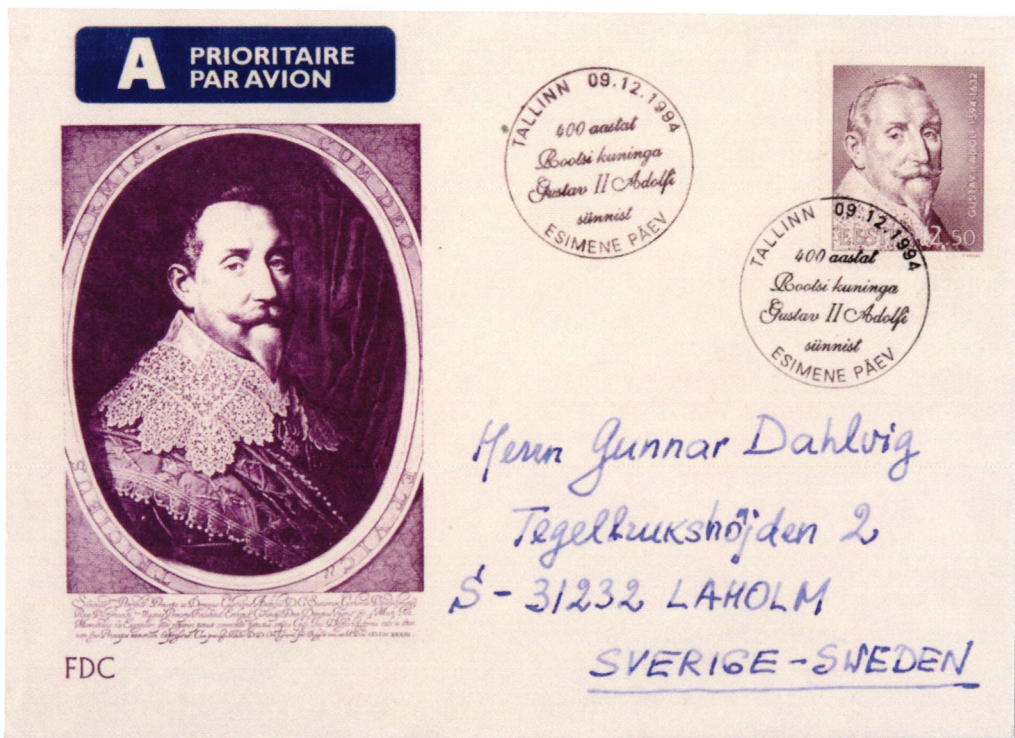 A PRIORITAIRE
PAR AVION
TALLINN 09.12.1994
400 aastat
Rootsi kuninga
Gustav II Adolfi
sünnist
ESIMENE PÄEV
GUSTAV II ADOLF 1594-1632
EESTI 2.50
TALLINN 09.12.1994
400 aastat
Rootsi kuninga
Gustav II Adolfi
sünnist
ESIMENE PÄEV
CUM DEO ET VICTRICIBUS ARMIS.
Herrn Gunnar Dahlvig
Tegelbrukshöjden 2
S - 31232 LAHOLM
SVERIGE - SWEDEN
FDC